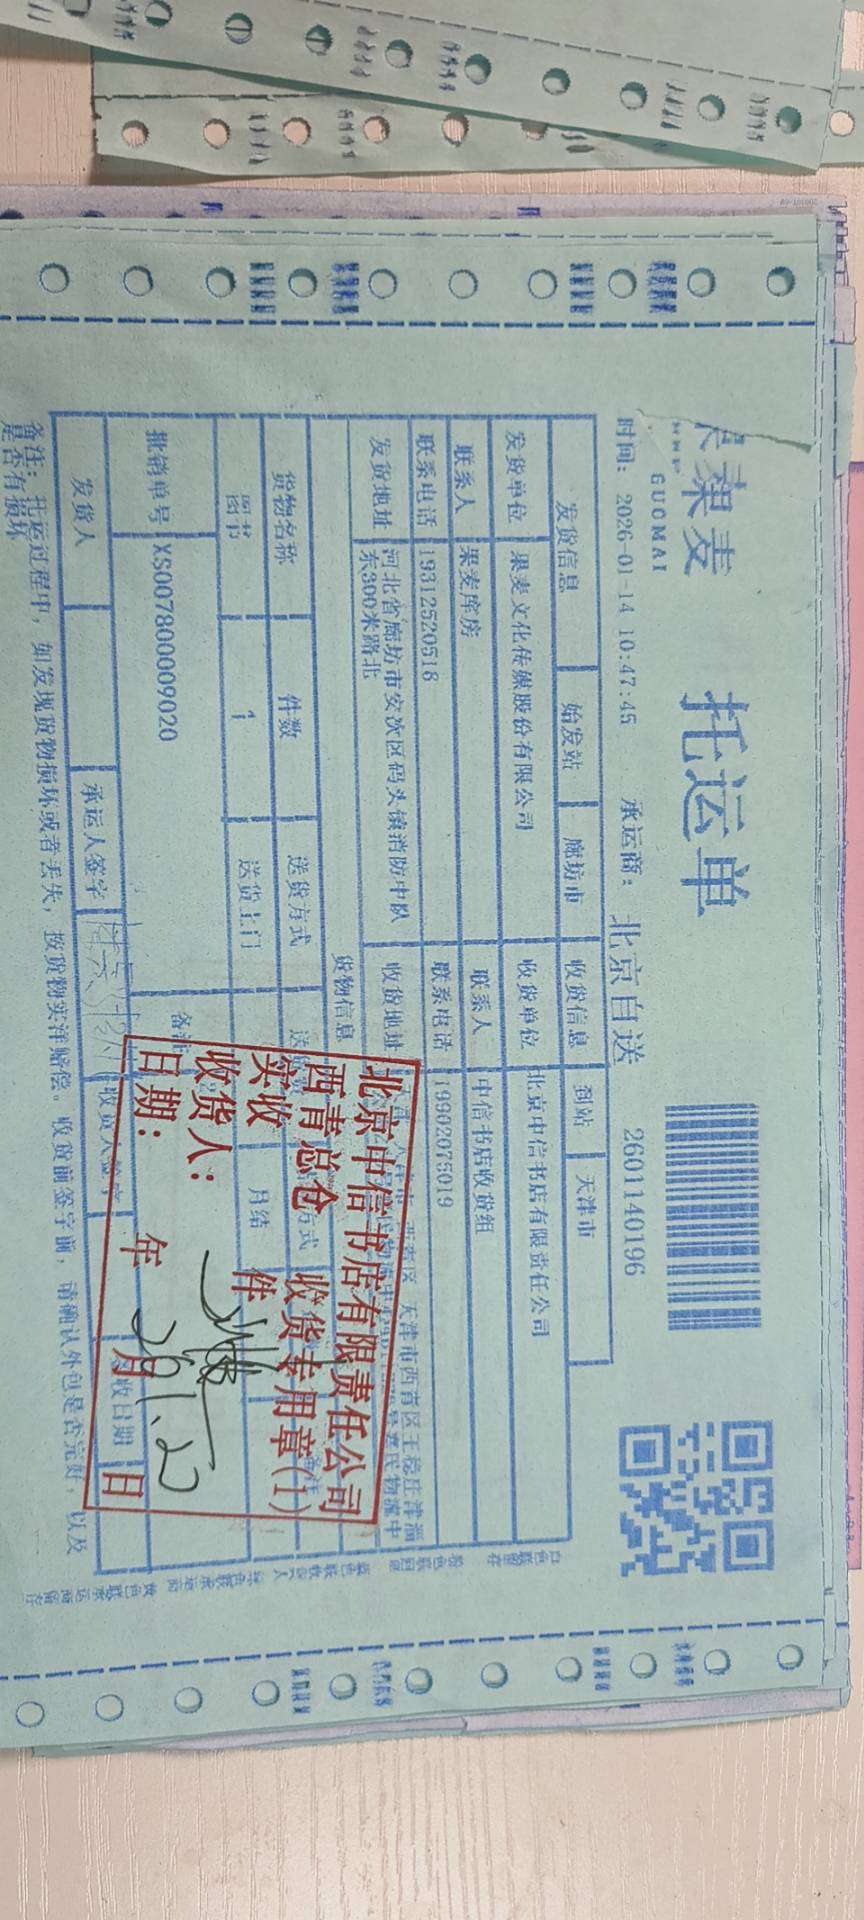 果麦
GUOMAI
托运单
时间: 2026-01-14 10:47:45 承运商: 北京自送 2601140196
发货信息 始发站 廊坊市 收货信息 到站 天津市
发货单位 果麦文化传媒股份有限公司 收货单位 北京中信书店有限责任公司
联系人 果麦库房 联系人 中信书店收货组
联系电话 19312520518 联系电话 19902075019
发货地址 河北省廊坊市安次区码头镇消防中队东300米路北 收货地址 天津市西青区王
货物信息
货物名称 件数 送货方式
图书 1 送货上门 月结
批销单号 XS007800009020 备注
发货人 承运人签字 收货人签字 收日期
备注: 托运过程中, 如发现货物损坏或者丢失, 按货物实洋赔偿。收货前签字前, 请确认外包是否完好, 以及
是否有损坏
北京中信书店有限责任公司
西青总仓 收货专用章(1)
实收 件
收货人:
日期: 年 月 日
26.1.22